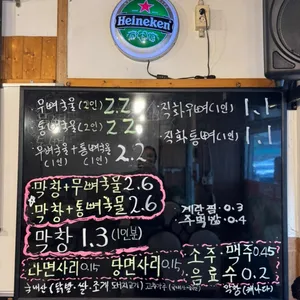 Heineken
· 우뼈국물 (2인) 2.2
· 통뼈국물 (2인) 2.2
· 우뼈국물 + 통뼈국물 2.2
(1인) (1인)
· 직화우뼈 (1인) 1.1
· 직화통뼈 (1인) 1.1
막창 + 우뼈국물 2.6
막창 + 통뼈국물 2.6
막창 1.3 (1인분)
계란찜 · 0.3
주먹밥 · 0.4
라면사리 0.15 당면사리 0.15
소주 · 맥주 0.45
음료수 0.2
국내산 (닭발 · 쌀